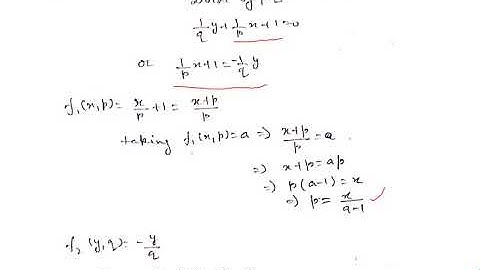 1/q y + 1/p x + 1 = 0
or 1/p x + 1 = -1/q y
f₁(x,p) = x/p + 1 = (x+p)/p
taking f₁(x,p) = a ⇒ (x+p)/p = a
⇒ x+p = ap
⇒ p(a-1) = x
⇒ p = x/(a-1)
f₂(y,q) = -y/q